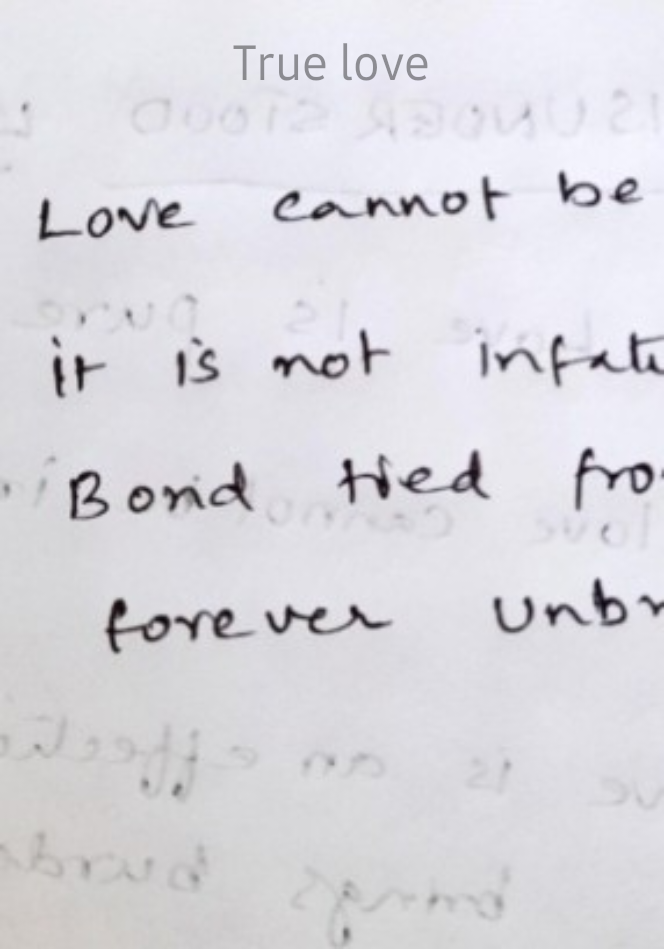 True love
Love cannot be
it is not infatu
Bond tied fro
forever unbr